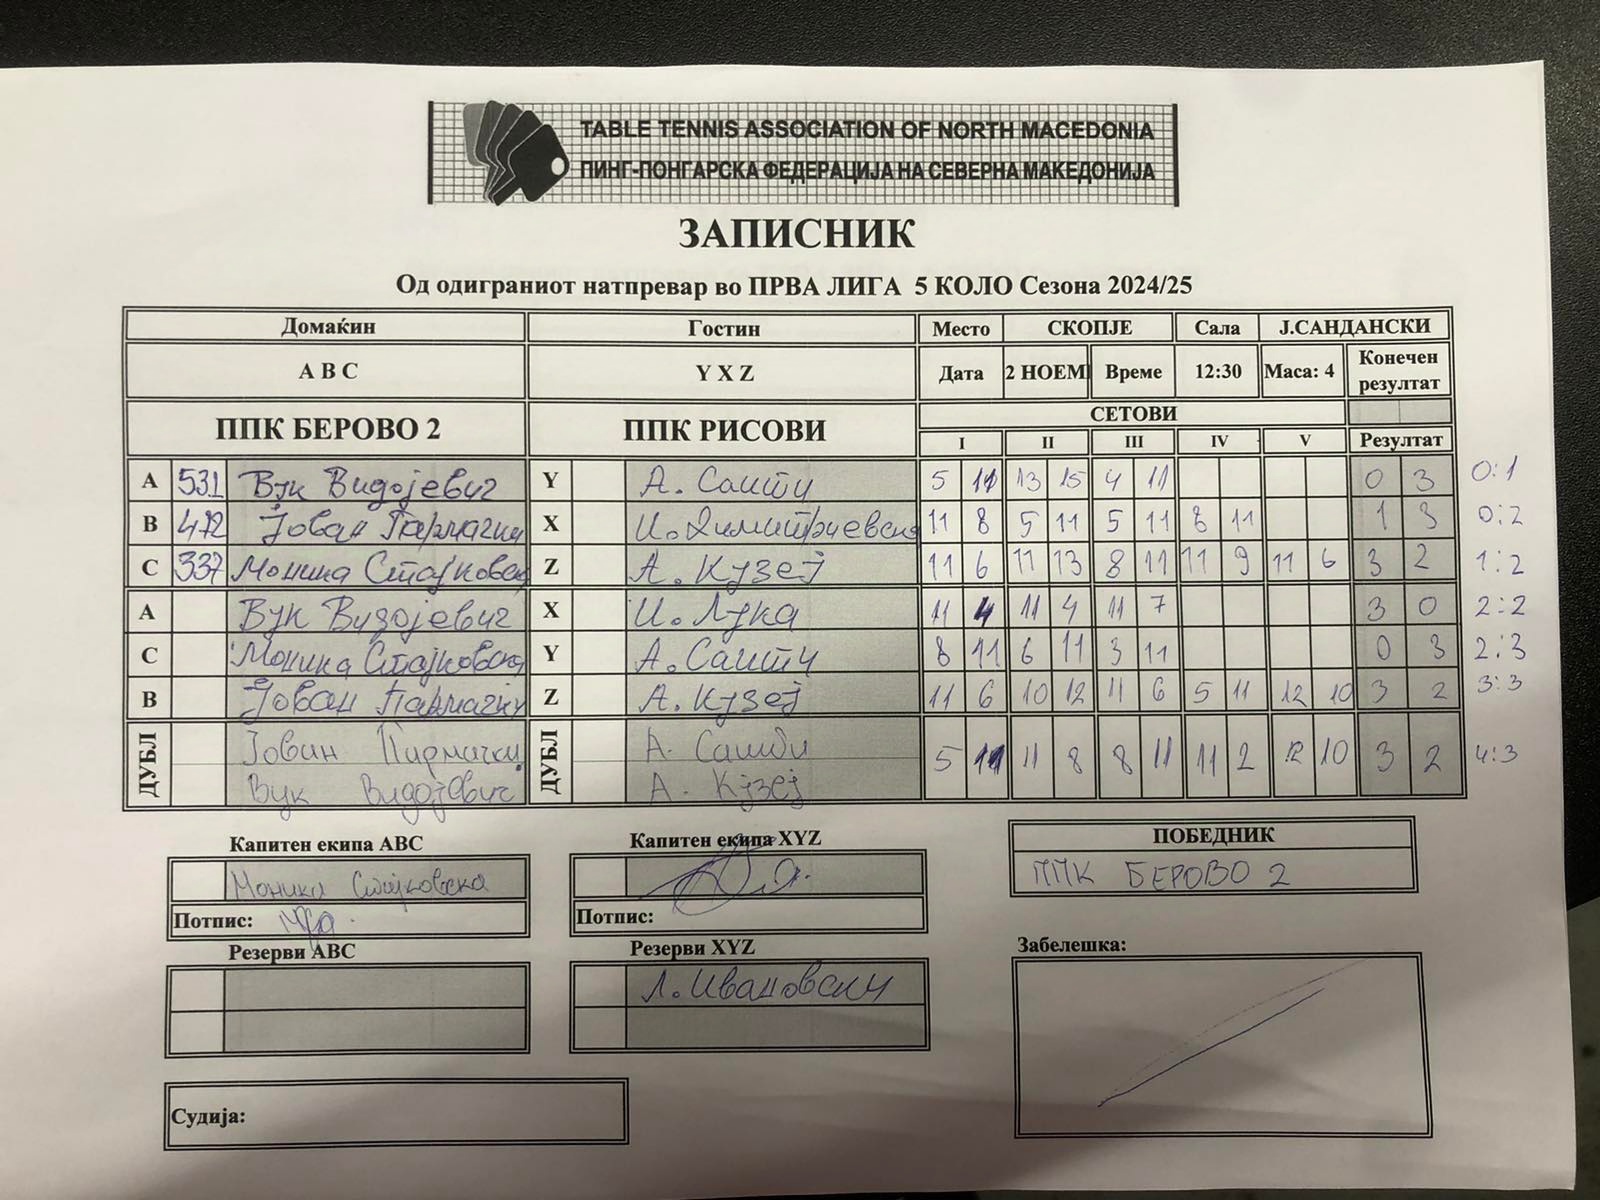 TABLE TENNIS ASSOCIATION OF NORTH MACEDONIA
ПИНГ-ПОНГАРСКА ФЕДЕРАЦИЈА НА СЕВЕРНА МАКЕДОНИЈА
ЗАПИСНИК
Од одиграниот натпревар во ПРВА ЛИГА 5 КОЛО Сезона 2024/25
Домаќин Гостин Место СКОПЈЕ Сала Ј.САНДАНСКИ
A B C Y X Z Дата 2 НОЕМ Време 12:30 Маса: 4 Конечен резултат
ППК БЕРОВО 2 ППК РИСОВИ СЕТОВИ
I II III IV V Резултат
A 531 Вук Видојевич Y А. Сашти 5 11 13 15 4 11 0 3 0:1
B 472 Јован Пармачки X И. Димитриевски 11 8 5 11 5 11 8 11 1 3 0:2
C 337 Моника Стојковска Z А. Кузеј 11 6 11 13 8 11 11 9 11 6 3 2 1:2
A Вук Видојевич X И. Лука 11 4 11 4 11 7 3 0 2:2
C Моника Стојковска Y А. Сашти 8 11 6 11 3 11 0 3 2:3
B Јован Пармачки Z А. Кузеј 11 6 10 12 11 6 5 11 12 10 3 2 3:3
ДУБЛ Јован Пармачки ДУБЛ А. Сашти 5 11 11 8 8 11 11 2 12 10 3 2 4:3
Вук Видојевич А. Кузеј
Капитен екипа ABC Капитен екипа XYZ ПОБЕДНИК
Моника Стојковска ППК БЕРОВО 2
Потпис: Потпис:
Резерви ABC Резерви XYZ Забелешка:
Л. Ивановски
Судија: